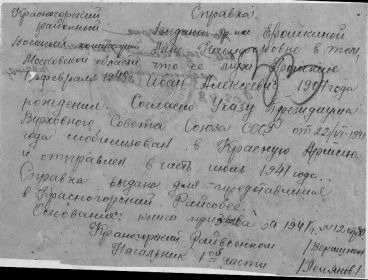 Справка.
Красногорский
районный Выдана гр-ке Ерошкиной
Военный комиссариат Анне Никифоровне в том,
Московской области что её муж Ерошкин
февраля 1948 г. Иван Алексеевич 1901 года
рождения. Согласно Указу Президиума
Верховного Совета Союза ССР от 22/VI-1941
года мобилизован в Красную Армию
и отправлен в часть июль 1941 года.
Справка выдана для представления
в Красногорский Райсобес.
Основание: книга призыва за 1941 г. № 12
Красногорский Райвоенком
Начальник 1ой части